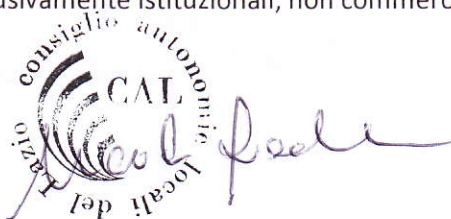 usivamente istituzionali, non commerc
consiglio autonomie locali del Lazio
CAL